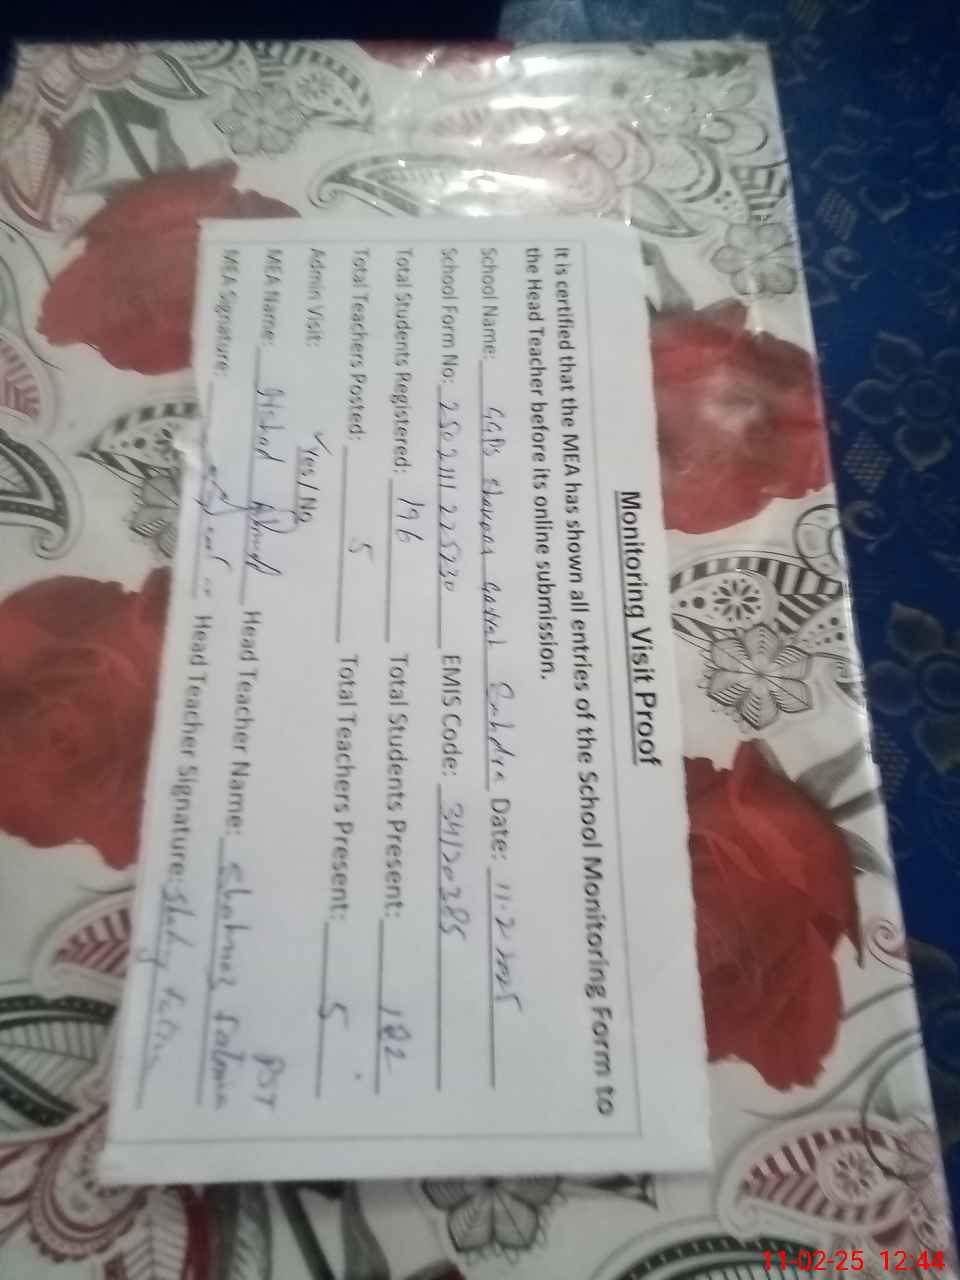 Monitoring Visit Proof
It is certified that the MEA has shown all entries of the School Monitoring Form to
the Head Teacher before its online submission.
School Name: GGPS Date: 11-2-2025
School Form No: EMIS Code: 34120385
Total Students Registered: 196 Total Students Present: 182
Total Teachers Posted: 5 Total Teachers Present: 5
Admin Visit: Yes / No
PST
MEA Name: Ahmad Head Teacher Name:
MEA Signature: Head Teacher Signature:
11-02-25 12:44